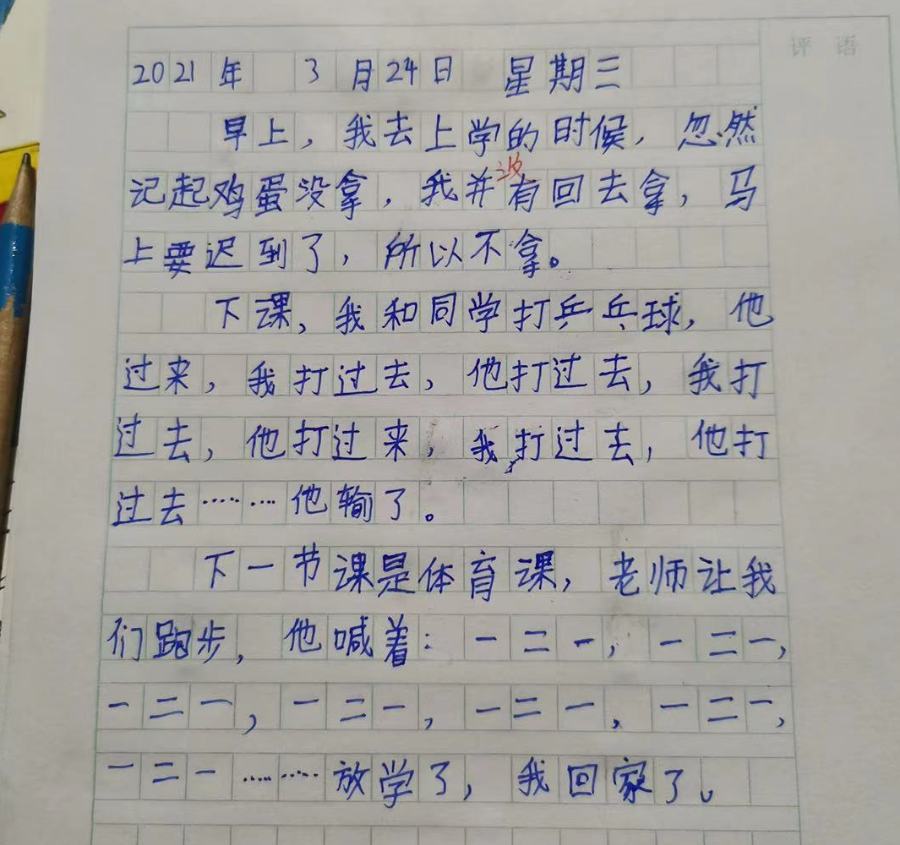 评语
2021年 3月24日 星期三
早上，我去上学的时候，忽然
记起鸡蛋没拿，我并没有回去拿，马
上要迟到了，所以不拿。
下课，我和同学打乒乓球，他
过来，我打过去，他打过去，我打
过去，他打过来，我打过去，他打
过去………他输了。
下一节课是体育课，老师让我
们跑步，他喊着：一二一，一二一，
一二一，一二一，一二一，一二一，
一二一………放学了，我回家了。